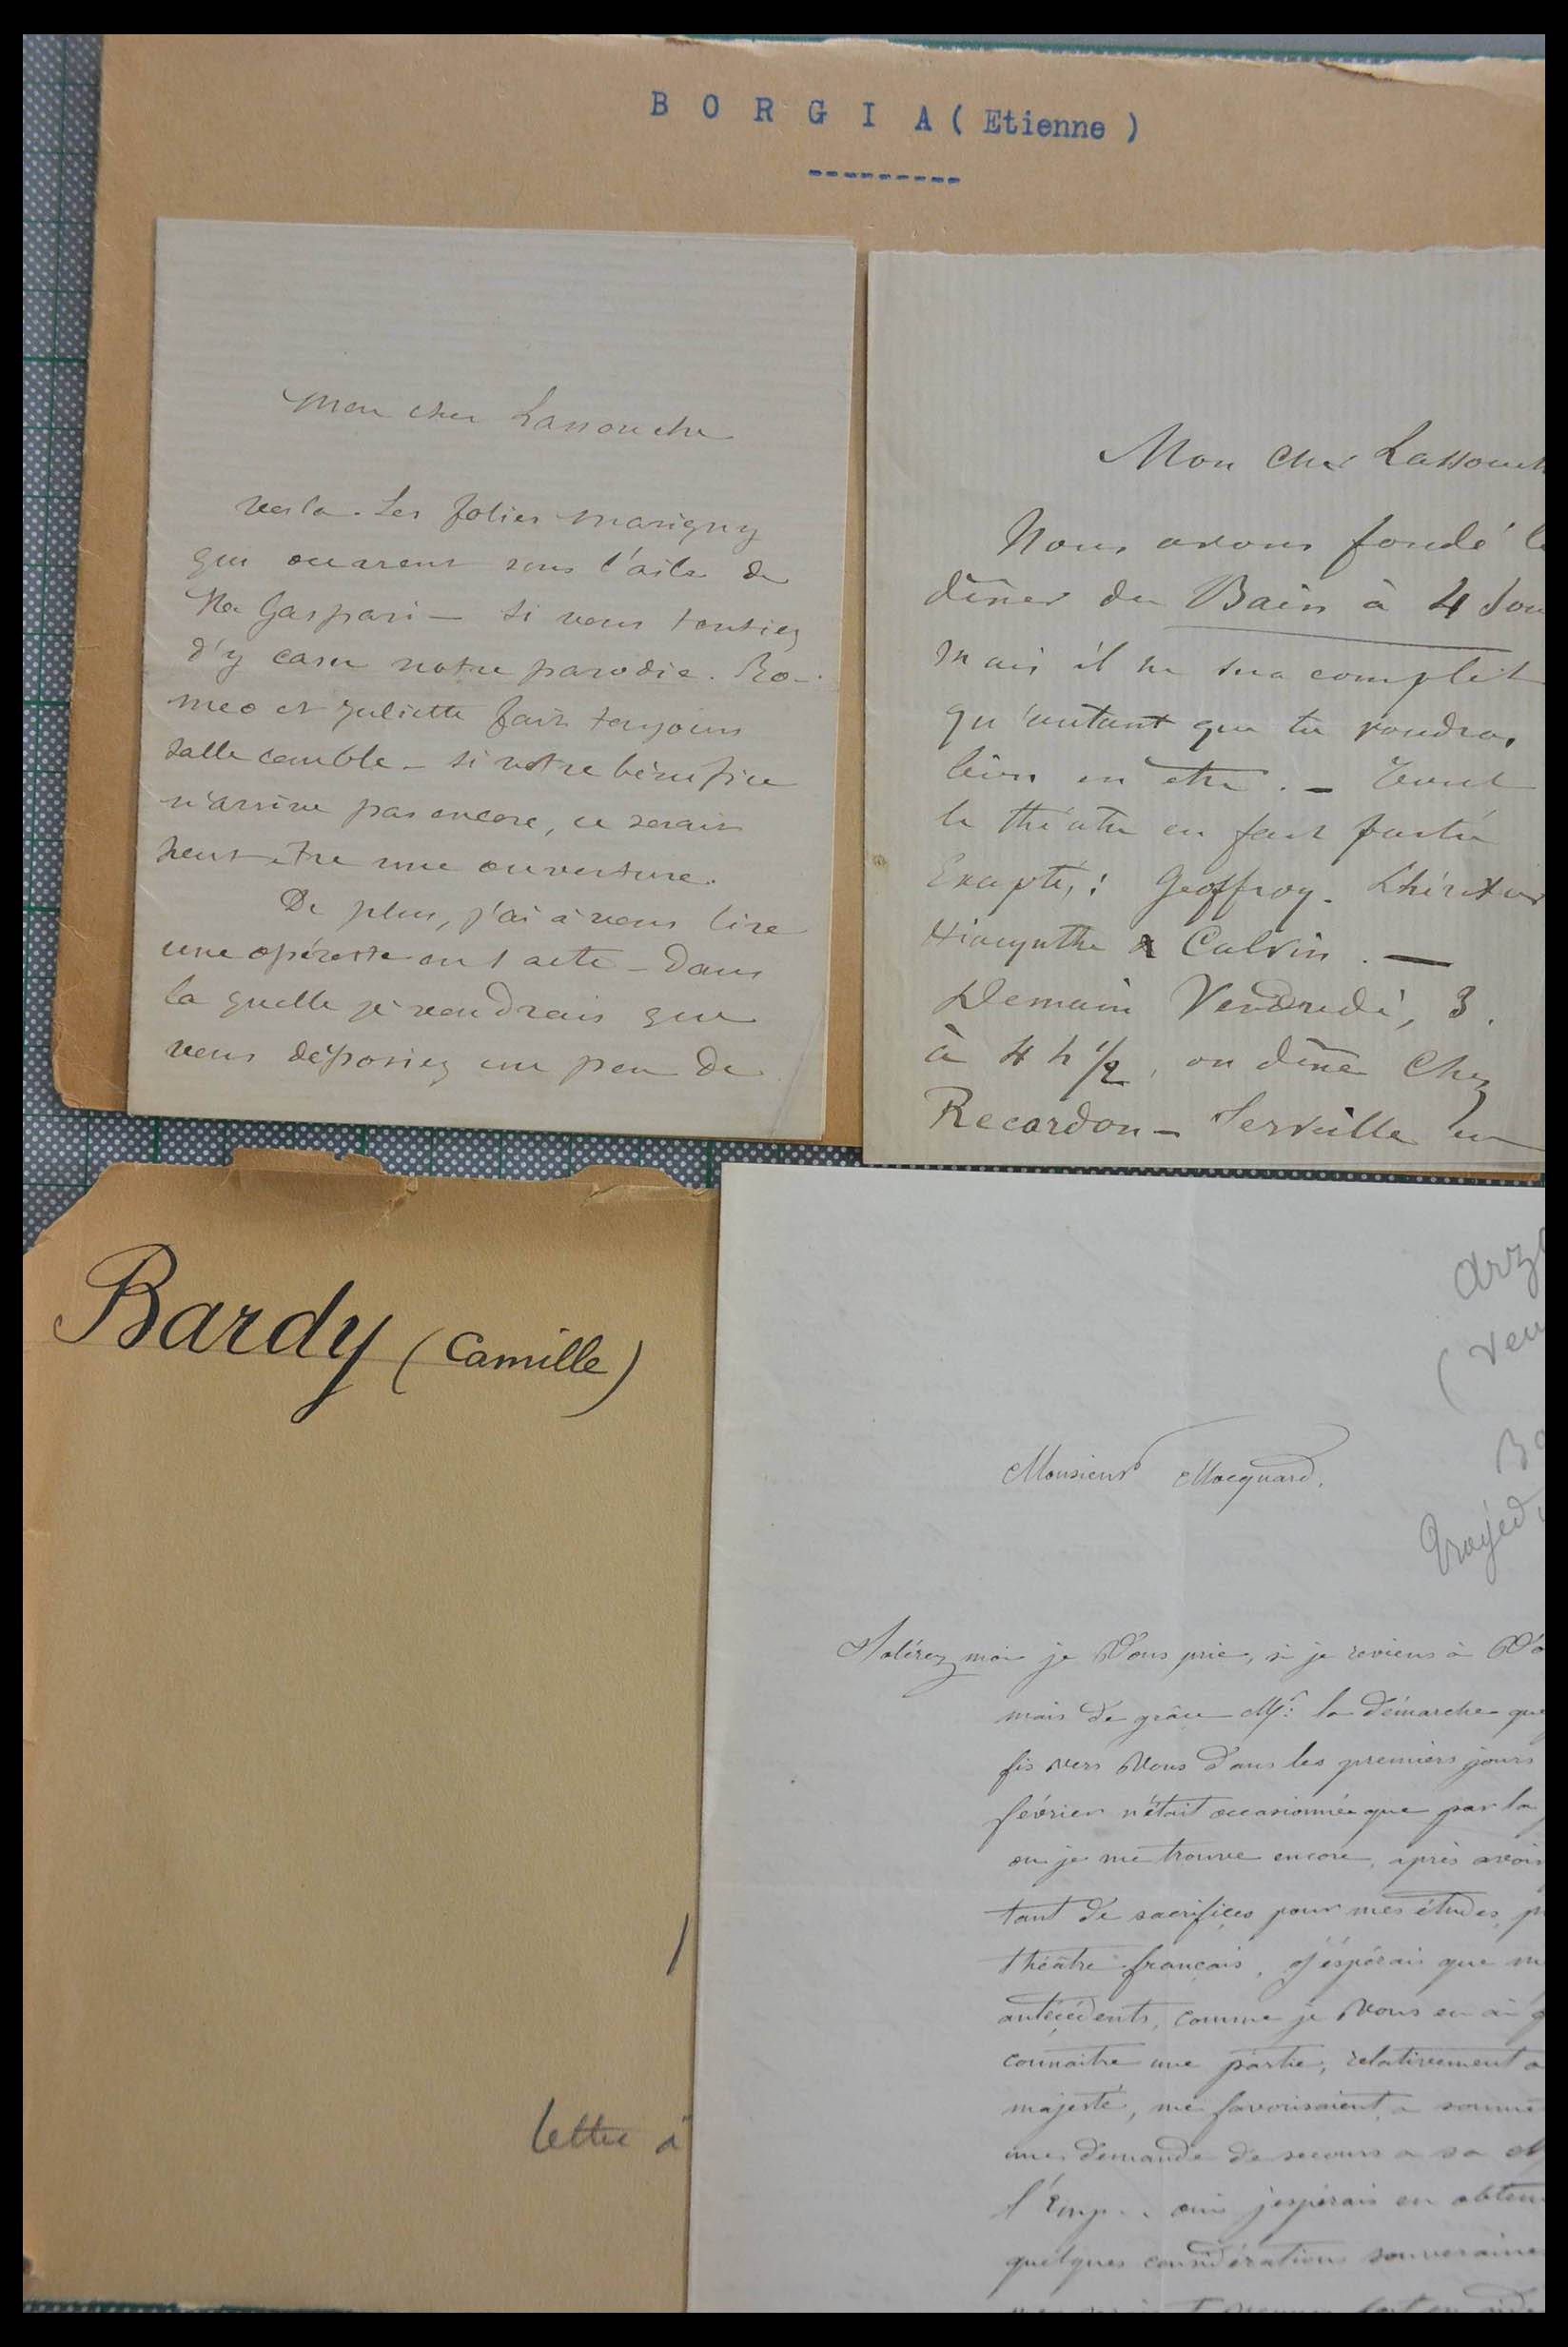 B O R G I A ( Etienne )
Mon cher Lassouche
voila. Les folies Marigny
qui ouvrent sous l'aile de
Gaspari — Si vous tentiez
d'y caser notre parodie. Ro-
meo et Juliette fait toujours
salle comble — si votre bénéfice
n'arrive pas encore, ce serait
peut etre une ouverture.
De plus, j'ai à vous lire
une opérette en 1 acte — Dans
la quelle je voudrais que
vous déposiez un peu de
Mon cher Lassouch
Nous avons fondé l
dîner du Bain à 4 Sou
mais il ne sera complet
qu'autant que tu voudras
bien en etre. — Tout
le théatre en fait partie
Exceptés : Geoffroy. Lhéritier
Hiacynthe & Calvin. —
Demain Vendredi, 3.
à 4 h 1/2, on dîne Chez
Recordon — Serville en
Bardy (Camille)
/
lettre à
arz
(veu
Ba
Tragéd
Monsieur Mocquard.
Tolérez moi je Vous prie, si je reviens à Vo
mais de grâce Mr: la démarche que
fis vers Vous Dans les premiers jours
février n'était occasionnée que par la
ou je me trouve encore, après avoir
tant de sacrifices pour mes études, p
théâtre français, j'éspérais que m
antécédents, comme je Vous en ai
connaitre une partie, relativement a
majesté, me favorisaient, a soumè
une demande de secours a sa M
l'Emp.. oui j'espérais en obten
quelques considérations souveraine